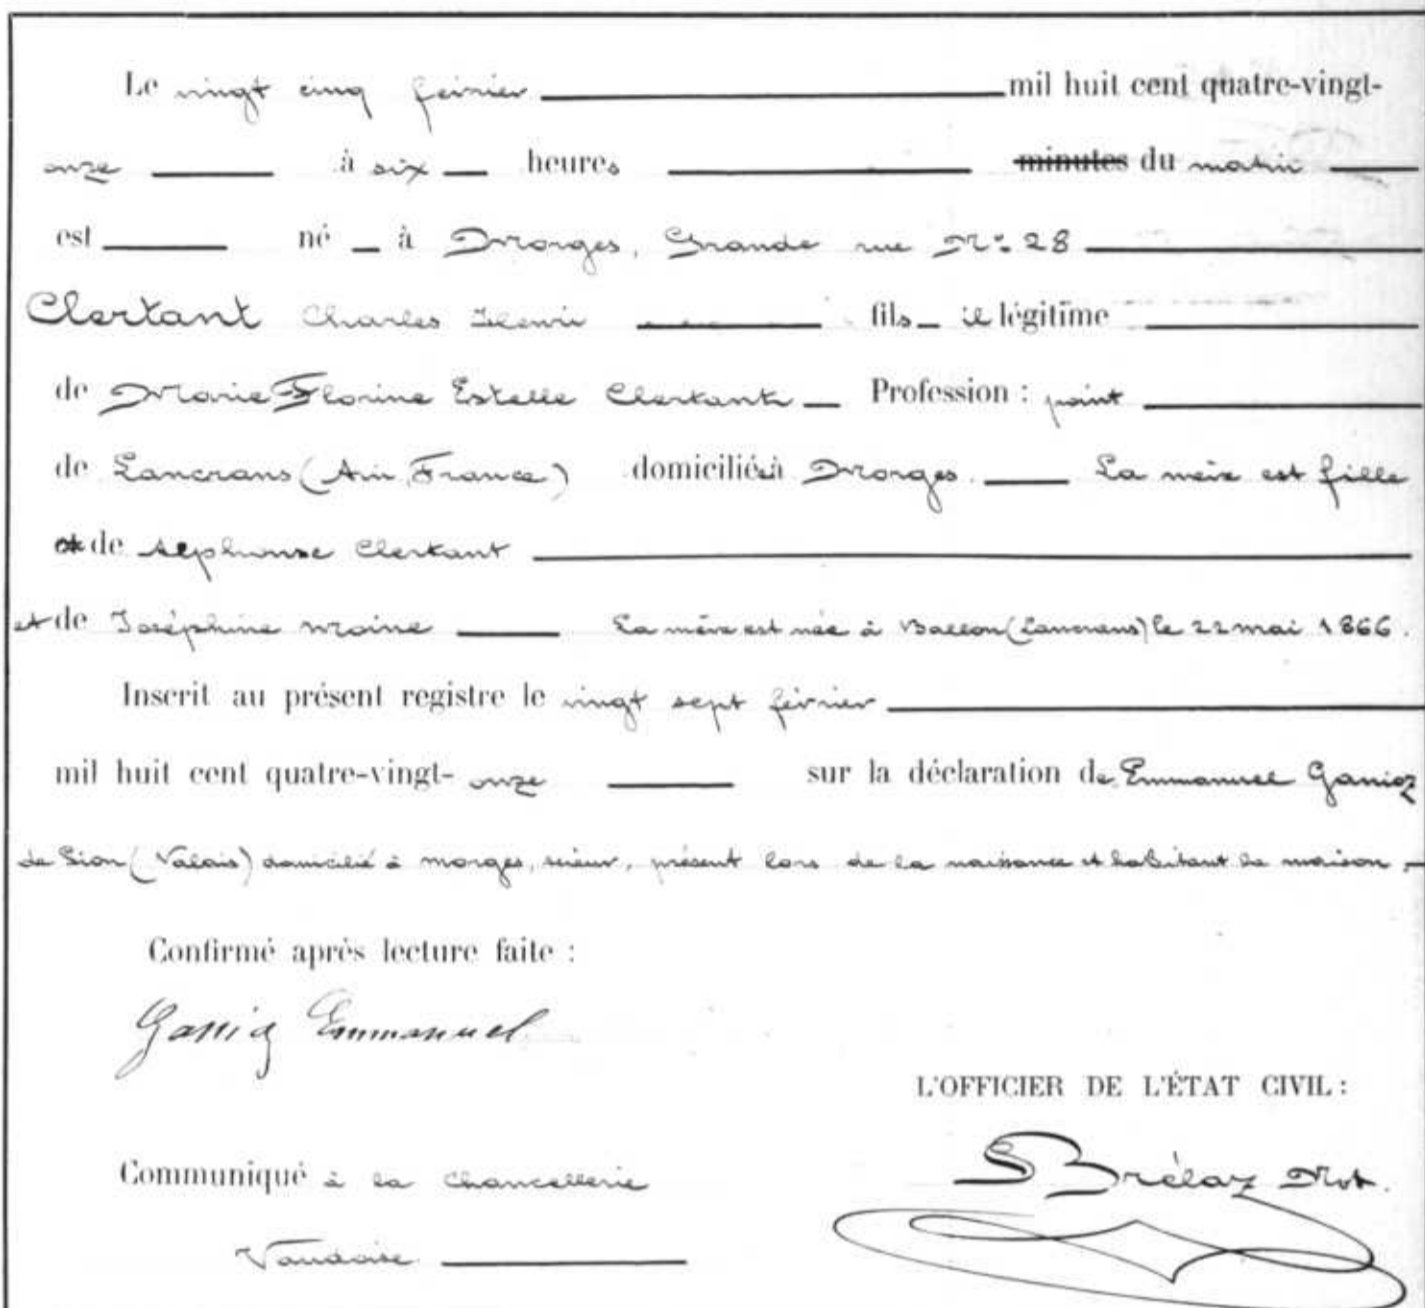 Le vingt cinq février mil huit cent quatre-vingt-
onze à six heures minutes du matin
est né à Morges, Grande rue No: 28
Clertant Charles Henri fils illégitime
de Marie Florine Estelle Clertant Profession: point
de Lancrans (Ain, France) domiciliés à Morges. La mère est fille
de Alphonse Clertant
et de Joséphine Moine La mère est née à Ballon (Lancrans) le 22 mai 1866.
Inscrit au présent registre le vingt sept février
mil huit cent quatre-vingt-onze sur la déclaration de Emmanuel Ganioz
de Sion (Valais) domicilié à Morges, scieur, présent lors de la naissance et habitant la maison.
Confirmé après lecture faite:
Ganioz Emmanuel
L'OFFICIER DE L'ÉTAT CIVIL:
Communiqué à la chancellerie
S Brélaz Not.
Vaudoise